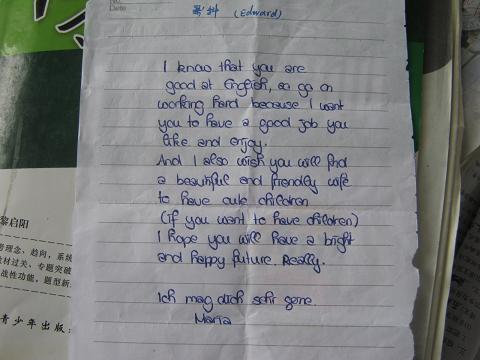 (Edward)
I know that you are
good at English, so go on
working hard because I want
you to have a good job you
like and enjoy.
And I also wish you will find
a beautiful and friendly wife
to have cute children
(If you want to have children)
I hope you will have a bright
and happy future. Really.
Ich mag dich sehr gerne.
Maria
黎启阳
考理念、趋向，系统
教材过关、专题突破
战性功能，题型新
青少年出版